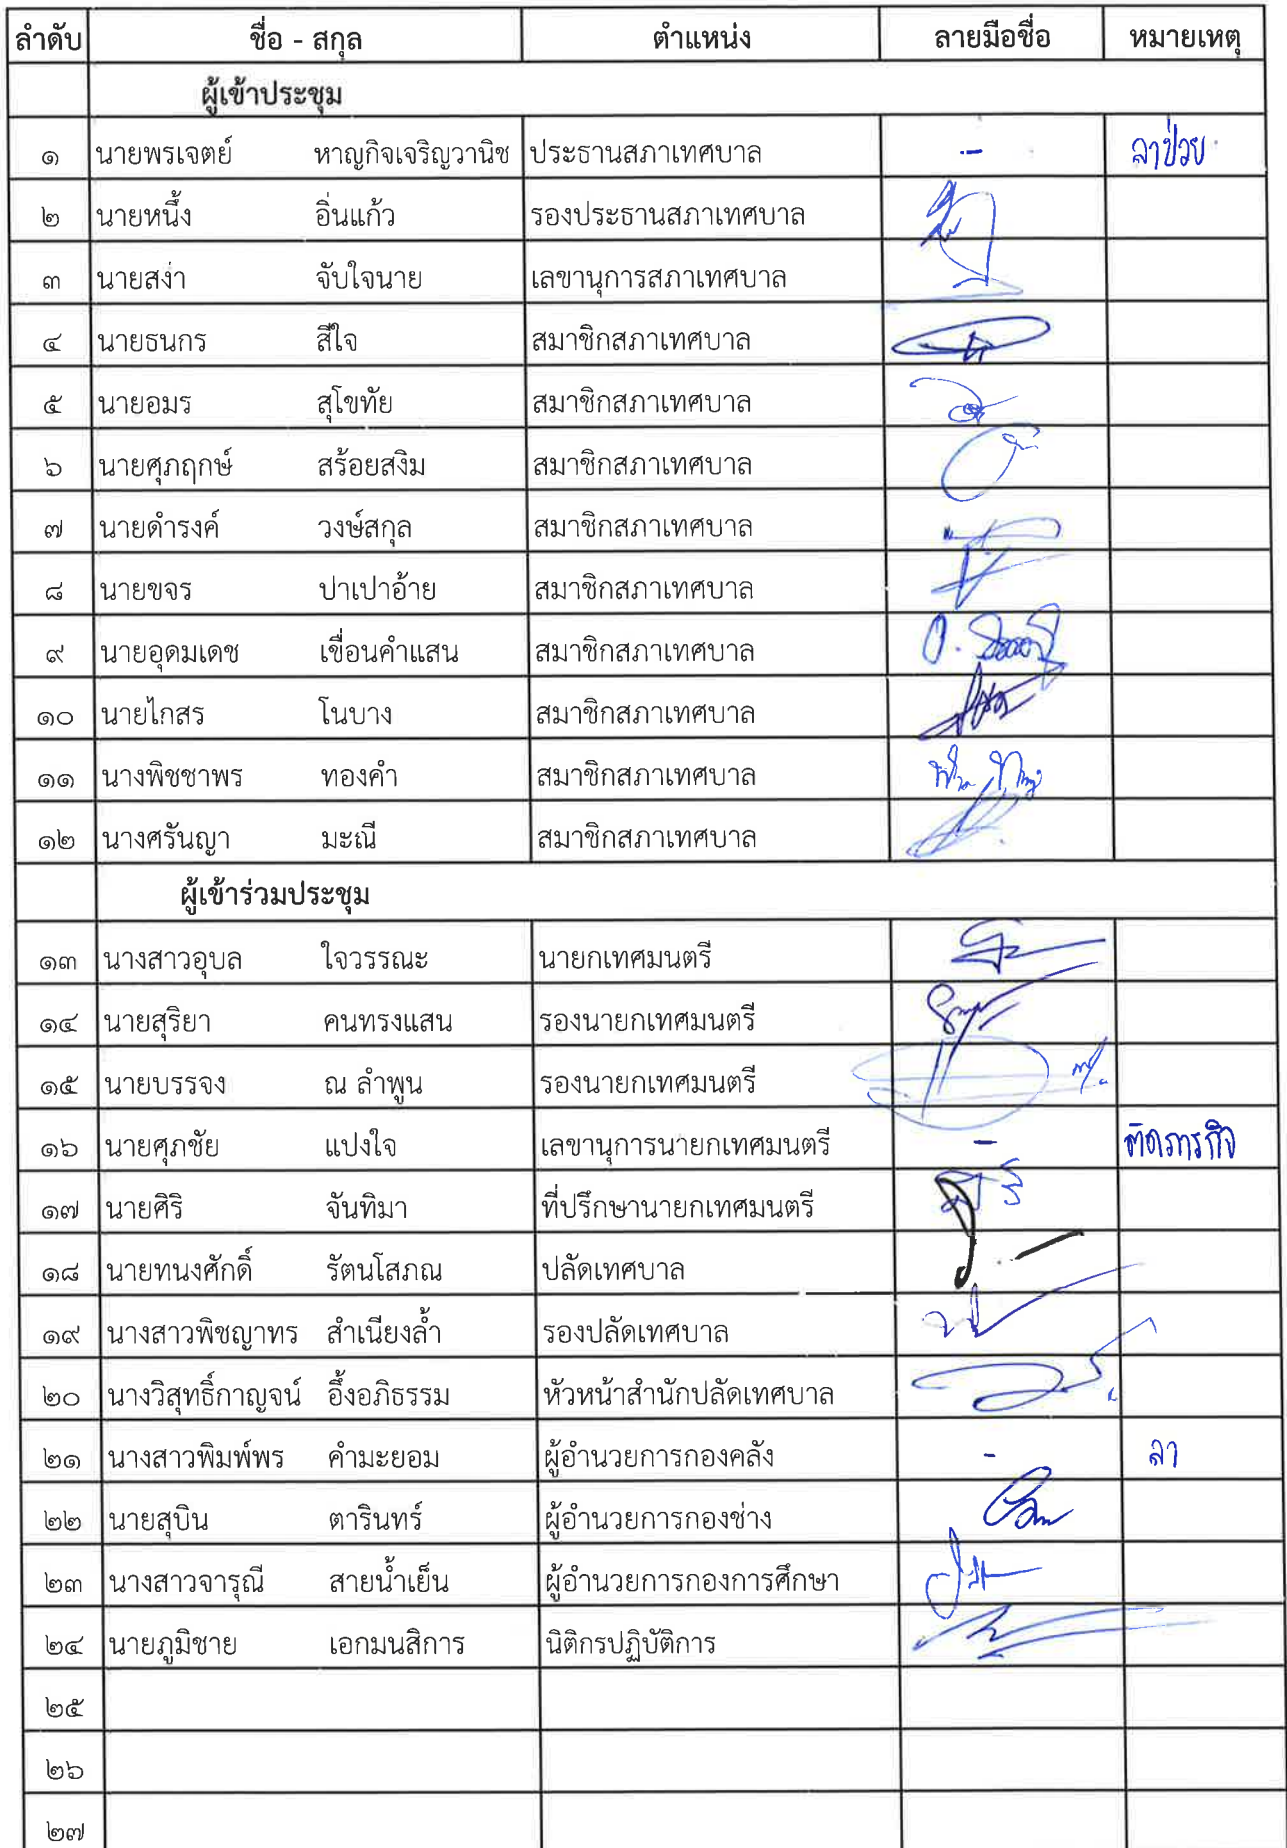 ลำดับ ชื่อ - สกุล ตำแหน่ง ลายมือชื่อ หมายเหตุ
ผู้เข้าประชุม
๑ นายพรเจตย์ หาญกิจเจริญวานิช ประธานสภาเทศบาล - ลาป่วย
๒ นายหนึ้ง อิ่นแก้ว รองประธานสภาเทศบาล
๓ นายสง่า จับใจนาย เลขานุการสภาเทศบาล
๔ นายธนกร สีใจ สมาชิกสภาเทศบาล
๕ นายอมร สุโขทัย สมาชิกสภาเทศบาล
๖ นายศุภฤกษ์ สร้อยสงิม สมาชิกสภาเทศบาล
๗ นายดำรงค์ วงษ์สกุล สมาชิกสภาเทศบาล
๘ นายขจร ปาเปาอ้าย สมาชิกสภาเทศบาล
๙ นายอุดมเดช เขื่อนคำแสน สมาชิกสภาเทศบาล
๑๐ นายไกสร โนบาง สมาชิกสภาเทศบาล
๑๑ นางพิชชาพร ทองคำ สมาชิกสภาเทศบาล
๑๒ นางศรันญา มะณี สมาชิกสภาเทศบาล
ผู้เข้าร่วมประชุม
๑๓ นางสาวอุบล ใจวรรณะ นายกเทศมนตรี
๑๔ นายสุริยา คนทรงแสน รองนายกเทศมนตรี
๑๕ นายบรรจง ณ ลำพูน รองนายกเทศมนตรี
๑๖ นายศุภชัย แปงใจ เลขานุการนายกเทศมนตรี - ติดภารกิจ
๑๗ นายศิริ จันทิมา ที่ปรึกษานายกเทศมนตรี
๑๘ นายทนงศักดิ์ รัตนโสภณ ปลัดเทศบาล
๑๙ นางสาวพิชญาทร สำเนียงล้ำ รองปลัดเทศบาล
๒๐ นางวิสุทธิ์กาญจน์ อึ้งอภิธรรม หัวหน้าสำนักปลัดเทศบาล
๒๑ นางสาวพิมพ์พร คำมะยอม ผู้อำนวยการกองคลัง - ลา
๒๒ นายสุบิน ตารินทร์ ผู้อำนวยการกองช่าง
๒๓ นางสาวจารุณี สายน้ำเย็น ผู้อำนวยการกองการศึกษา
๒๔ นายภูมิชาย เอกมนสิการ นิติกรปฏิบัติการ
๒๕
๒๖
๒๗